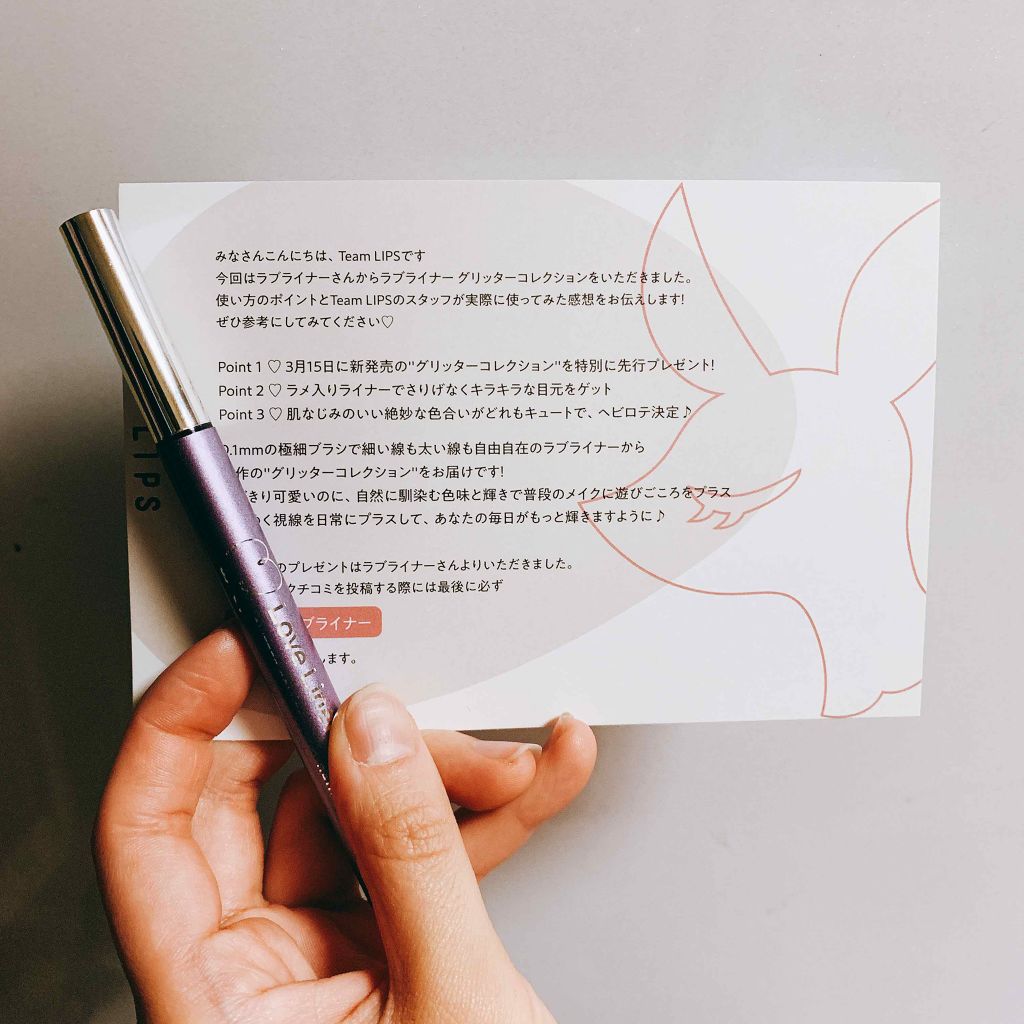 みなさんこんにちは、Team LIPSです
今回はラブライナーさんからラブライナー グリッターコレクションをいただきました。
使い方のポイントとTeam LIPSのスタッフが実際に使ってみた感想をお伝えします!
ぜひ参考にしてみてください♡
Point 1 ♡ 3月15日に新発売の"グリッターコレクション"を特別に先行プレゼント!
Point 2 ♡ ラメ入りライナーでさりげなくキラキラな目元をゲット
Point 3 ♡ 肌なじみのいい絶妙な色合いがどれもキュートで、ヘビロテ決定♪
0.1mmの極細ブラシで細い線も太い線も自由自在のラブライナーから
作の"グリッターコレクション"をお届けです!
きり可愛いのに、自然に馴染む色味と輝きで普段のメイクに遊びごころをプラス
く視線を日常にプラスして、あなたの毎日がもっと輝きますように♪
のプレゼントはラブライナーさんよりいただきました。
クチコミを投稿する際には最後に必ず
ブライナー
します。
LIPS
Love Line